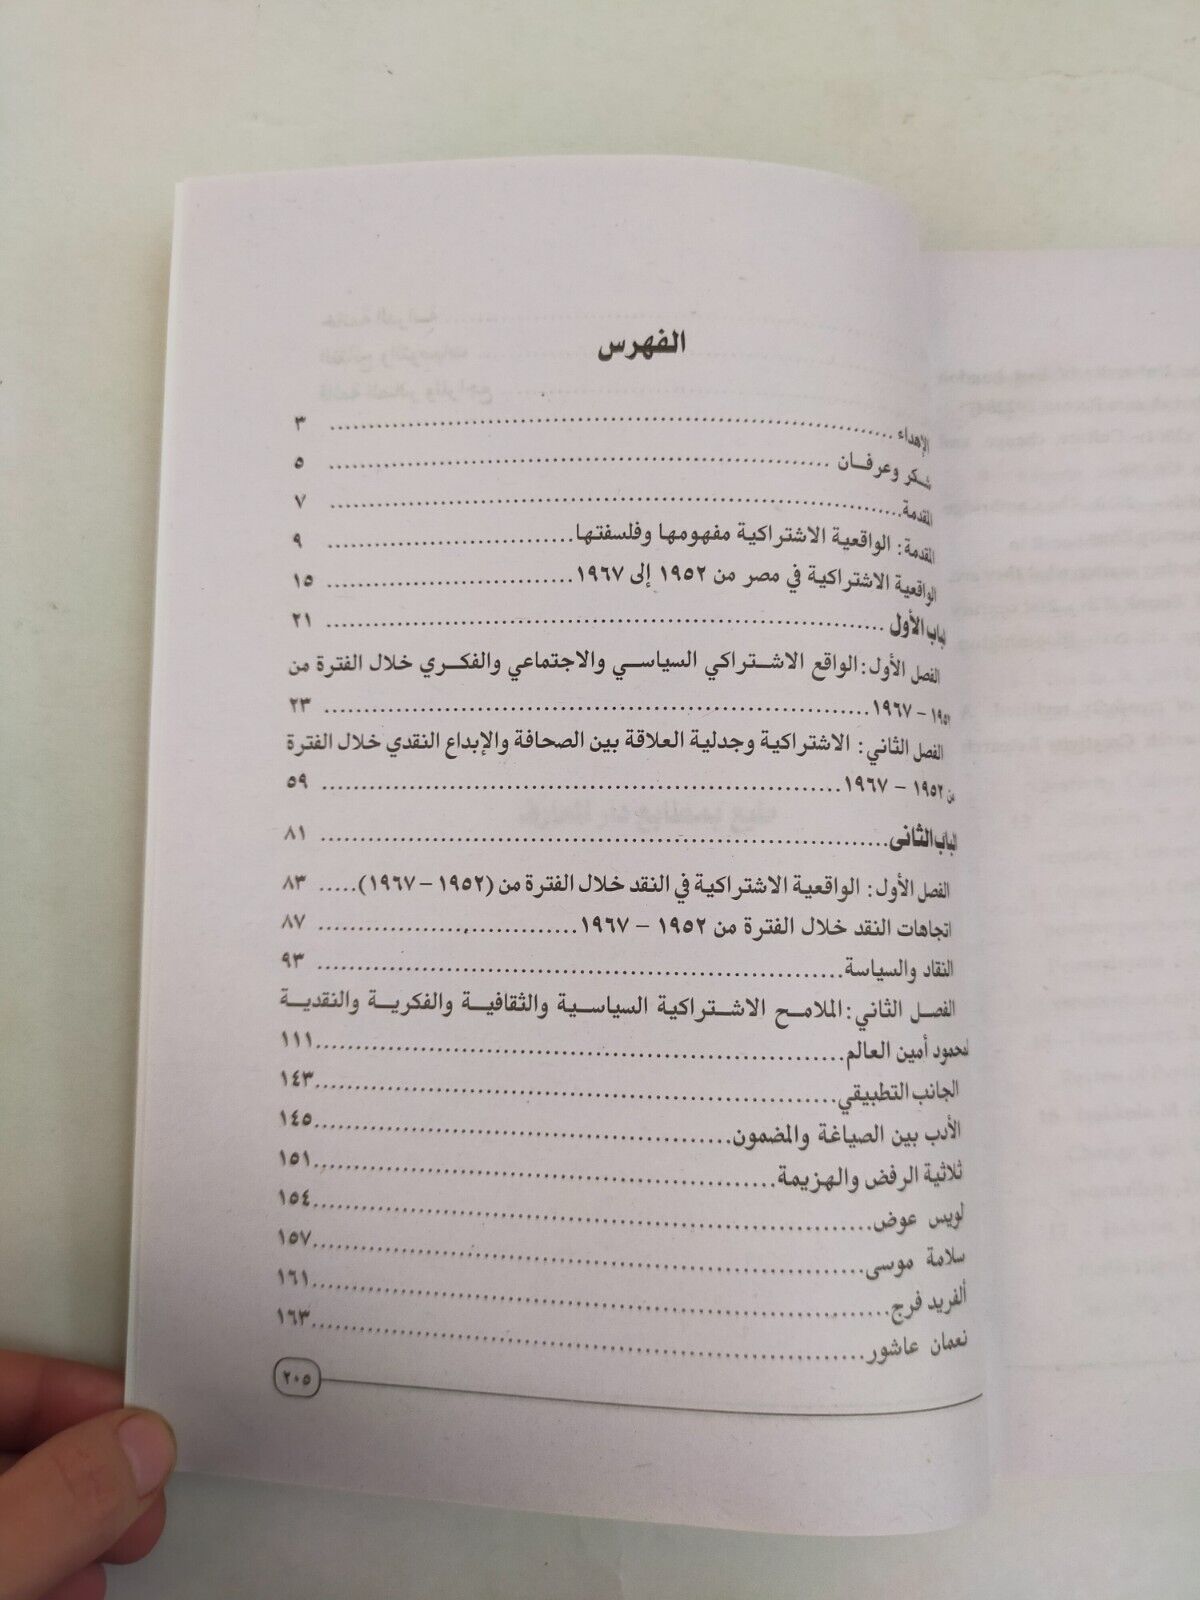 الفهرس
الإهداء ........ ٣
شكر وعرفان ........ ٥
المقدمة ........ ٧
المقدمة: الواقعية الاشتراكية مفهومها وفلسفتها ........ ٩
الواقعية الاشتراكية في مصر من ١٩٥٢ إلى ١٩٦٧ ........ ١٥
الباب الأول ........ ٢١
الفصل الأول: الواقع الاشتراكي السياسي والاجتماعي والفكري خلال الفترة من
١٩٥٢ – ١٩٦٧ ........ ٢٣
الفصل الثاني: الاشتراكية وجدلية العلاقة بين الصحافة والإبداع النقدي خلال الفترة
من ١٩٥٢ – ١٩٦٧ ........ ٥٩
الباب الثانى ........ ٨١
الفصل الأول: الواقعية الاشتراكية في النقد خلال الفترة من (١٩٥٢ – ١٩٦٧) ..... ٨٣
اتجاهات النقد خلال الفترة من ١٩٥٢ – ١٩٦٧ ........ ٨٧
النقاد والسياسة ........ ٩٣
الفصل الثاني: الملامح الاشتراكية السياسية والثقافية والفكرية والنقدية
لمحمود أمين العالم ........ ١١١
الجانب التطبيقي ........ ١٤٣
الأدب بين الصياغة والمضمون ........ ١٤٥
ثلاثية الرفض والهزيمة ........ ١٥١
لويس عوض ........ ١٥٤
سلامة موسى ........ ١٥٧
ألفريد فرج ........ ١٦١
نعمان عاشور ........ ١٦٣
٢٠٥